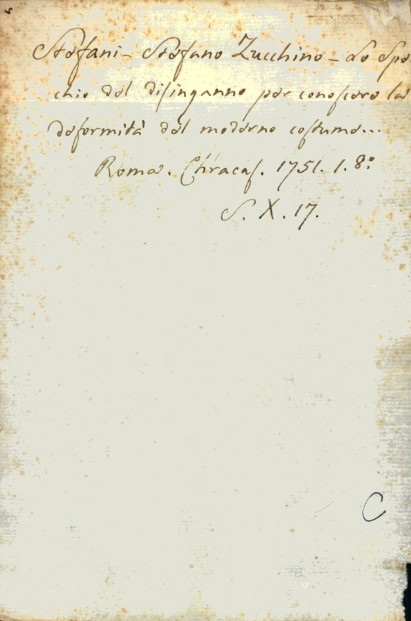 Stefani - Stefano Zucchino - Lo Spe
chio del disinganno per conoscere la
deformità del moderno costume...
Roma. Chracas. 1751. 1. 8.°
S. X. 17.
C